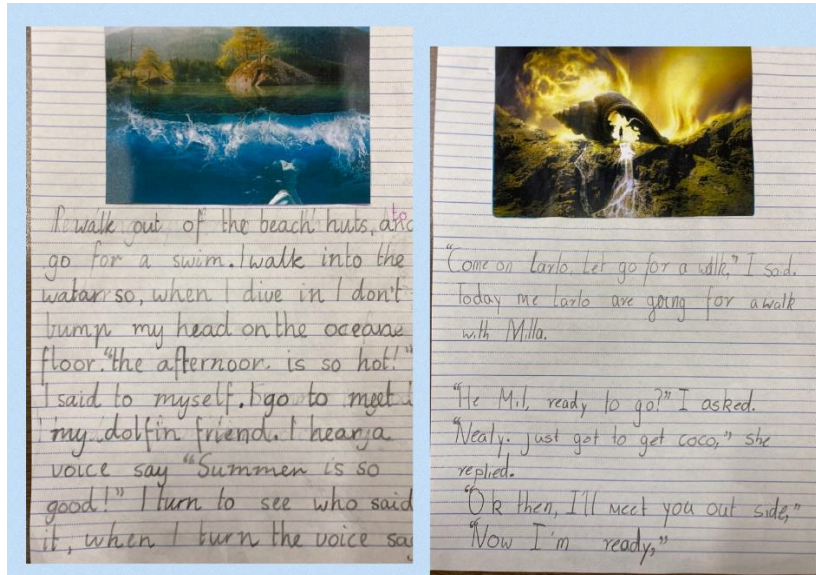 I walk out of the beach huts, to
go for a swim. I walk into the
watarr so, when I dive in I don't
bump my head on the oceane
floor. "the afternoon is so hot!"
I said to myself. I go to meet
my dolfin friend. I hear a
voice say "Summer is so
good!" I turn to see who said
it, when I turn the voice say
"Come on Larlo. Let go for a walk," I said.
Today me Larlo are going for a walk
with Milla.
"He Mil, ready to go?" I asked.
"Nealy. just got to get coco," she
replied.
"Ok then, I'll meet you out side,"
"Now I'm ready,"